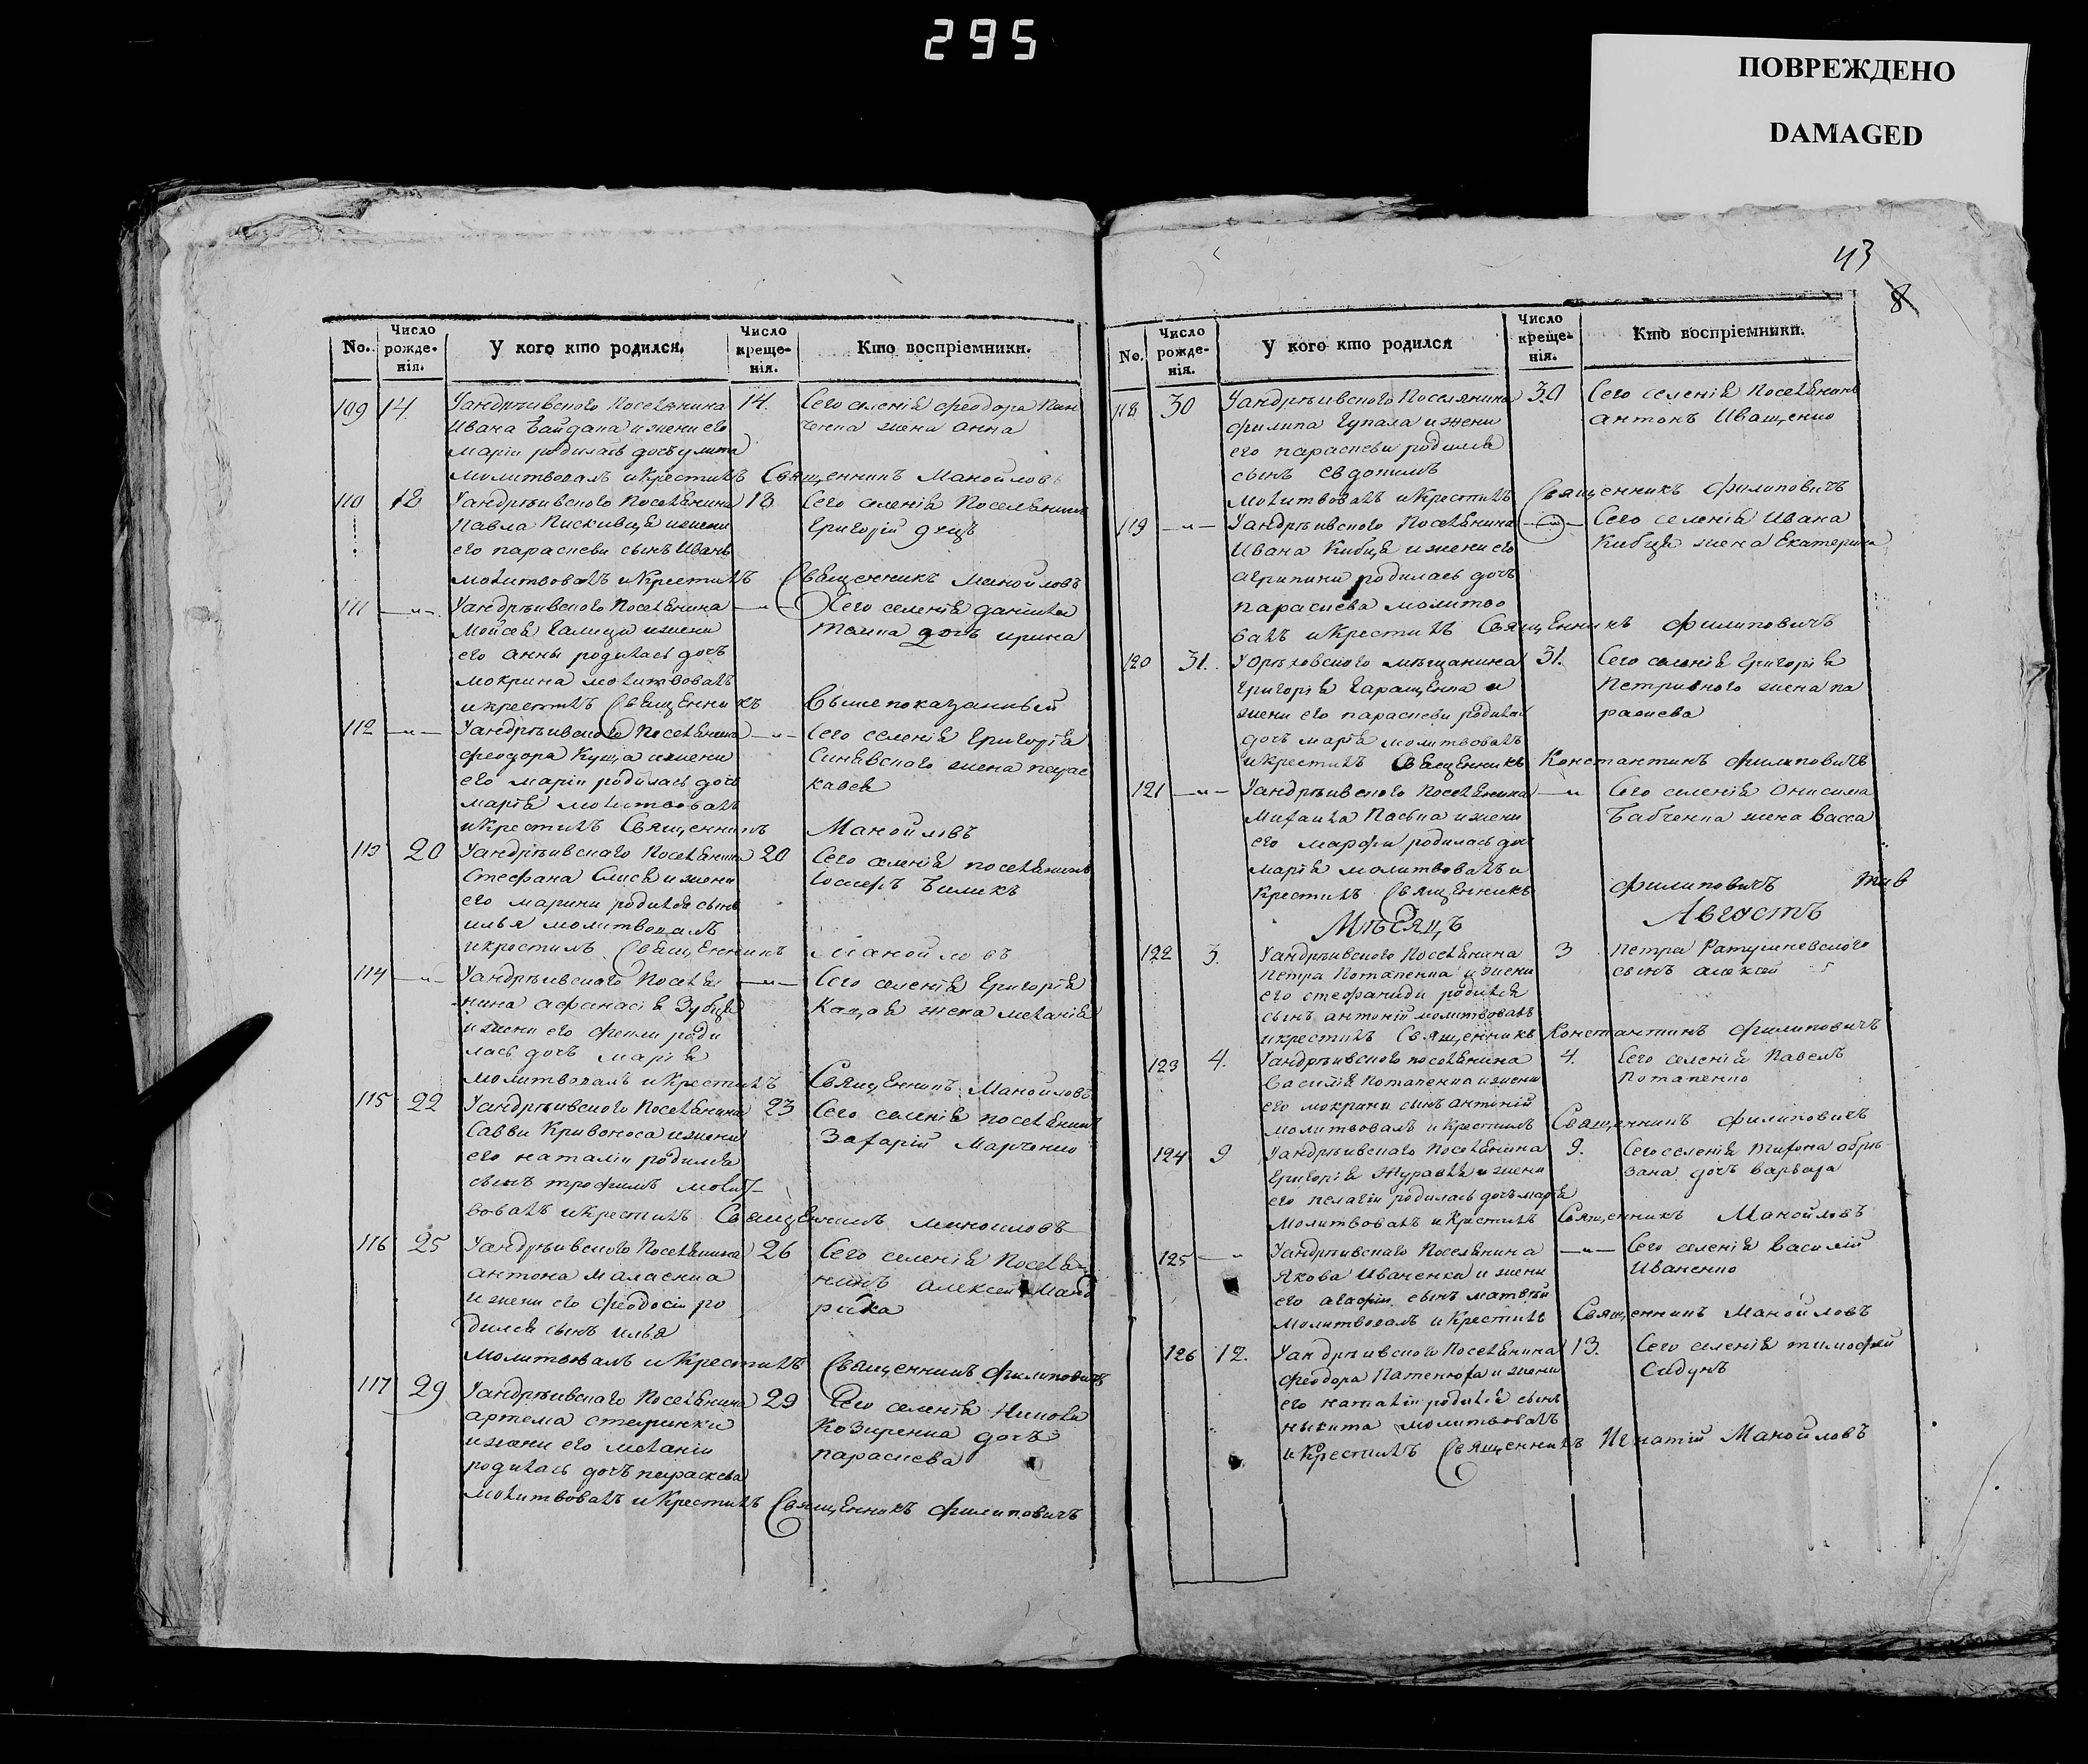 295
ПОВРЕЖДЕНО
DAMAGED
43
8
No.
Число рожде-нія.
У кого кто родился.
Число креще-нія.
Кто воспріемники.
109 14 Уандрѣивского Поселянина 14. Сего селенія феодора Пан
Ивана Байдана и жени его ченка жена Анна
маріи родилась дочь улита
молитвовалъ и крестилъ Священникъ Манойловъ
110 18 Уандрѣивского Поселянина 18 Сего селенія Поселянинъ
Павла Пискивця и жени Григорій
его параскеви сынъ Иванъ
молитвовалъ и крестилъ Священникъ Манойловъ
111 —"— Уандрѣивского Поселянина —"— Сего селенія даніила
Мойсея Галици и жени дочь ирина
его анны родилась дочь
мокрина молитвовалъ
и крестилъ Священникъ Вышепоказанный
112 —"— Уандрѣивского Поселянина —"— Сего селенія Григорія
феодора Куща и жени Синявского жена парас
его маріи родилась дочь кавея
марія молитвовалъ
и крестилъ Священникъ Манойловъ
113 20 Уандрѣивскаго Поселянина 20 Сего селенія поселянинъ
Стефана Слися и жени Іосифъ Биликъ
его марини родился сынъ
илья молитвовалъ
и крестилъ Священникъ Манойловъ
114 —"— Уандрѣивского Поселя —"— Сего селенія Григорія
нина афанасія Зубця жена меланія
и жени его феклы роди
лась дочь марія
молитвовалъ и крестилъ Священникъ Манойловъ
115 22 Уандрѣивского Поселянина 23 Сего селенія поселянинъ
Савви Кривоноса и жени Захарій Марченко
его наталіи родился
сынъ трофимъ молит-
вовалъ и крестилъ Священникъ Манойловъ
116 25 Уандрѣивского Поселянина 26 Сего селенія Поселя-
антона нинъ алексей
и жени его феодосіи ро
дился сынъ илья
молитвовалъ и крестилъ Священникъ филиповичъ
117 29 Уандрѣивскаго Поселянина 29 Сего селенія
артема Козиренка дочь
и жени его меланіи параскева
родилась дочь параскева
молитвовалъ и крестилъ Священникъ филиповичъ
No.
Число рожде-нія.
У кого кто родился
Число креще-нія.
Кто воспріемники.
118 30 Уандрѣивского Поселянина 30 Сего селенія Поселянинъ
филипа Чупала и жени антонъ Иващенко
его параскеви родился
сынъ Евдокимъ
молитвовалъ и крестилъ Священникъ филиповичъ
119 —"— Уандрѣивского Поселянина —"— Сего селенія Ивана
Ивана Кибця и жени его Кибця жена Екатерина
агрипини родилась дочь
параскева молитво
валъ и крестилъ Священникъ филиповичъ
120 31. У орѣховского мѣщанина 31. Сего селенія Григорія
Григорія Геращенка и Петривного жена па
жени его параскеви родилась раскева
дочь марія молитвовалъ
и крестилъ Священникъ Константинъ филиповичъ
121 —"— Уандрѣивского Поселянина —"— Сего селенія Онисима
Михаила Паська и жени Бабченка жена васса
его марфи родилась дочь
марія молитвовалъ и
крестилъ Священникъ филиповичъ
Мѣсяцъ Августъ
122 3. Уандрѣивского Поселянина 3 петра Ратушневского
петра Потапенка и жени сынъ алексей
его стефаниди родился
сынъ антоній молитвовалъ
и крестилъ Священникъ Константинъ филиповичъ
123 4. Уандрѣивского поселянина 4. Сего селенія Павелъ
Василія Потапенка и жени Потапенко
его мокрини сынъ антоній
молитвовалъ и крестилъ Священникъ филиповичъ
124 9 Уандрѣивскаго Поселянина 9. Сего селенія тихона обрѣ-
Григорія Журавля и жени зана дочь варвара
его пелагіи родилась дочь марія
молитвовалъ и крестилъ Священникъ Манойловъ
125 —"— Уандрѣивскаго Поселянина —"— Сего селенія василій
Якова Иваненка и жени Иваненко
его агафіи сынъ матвѣй
молитвовалъ и крестилъ Священникъ Манойловъ
126 12. Уандрѣивского Поселянина 13. Сего селенія тимофей
феодора Патенюха и жени Садунъ
его наталіи родился сынъ
никита молитвовалъ
и крестилъ Священникъ Игнатій Манойловъ